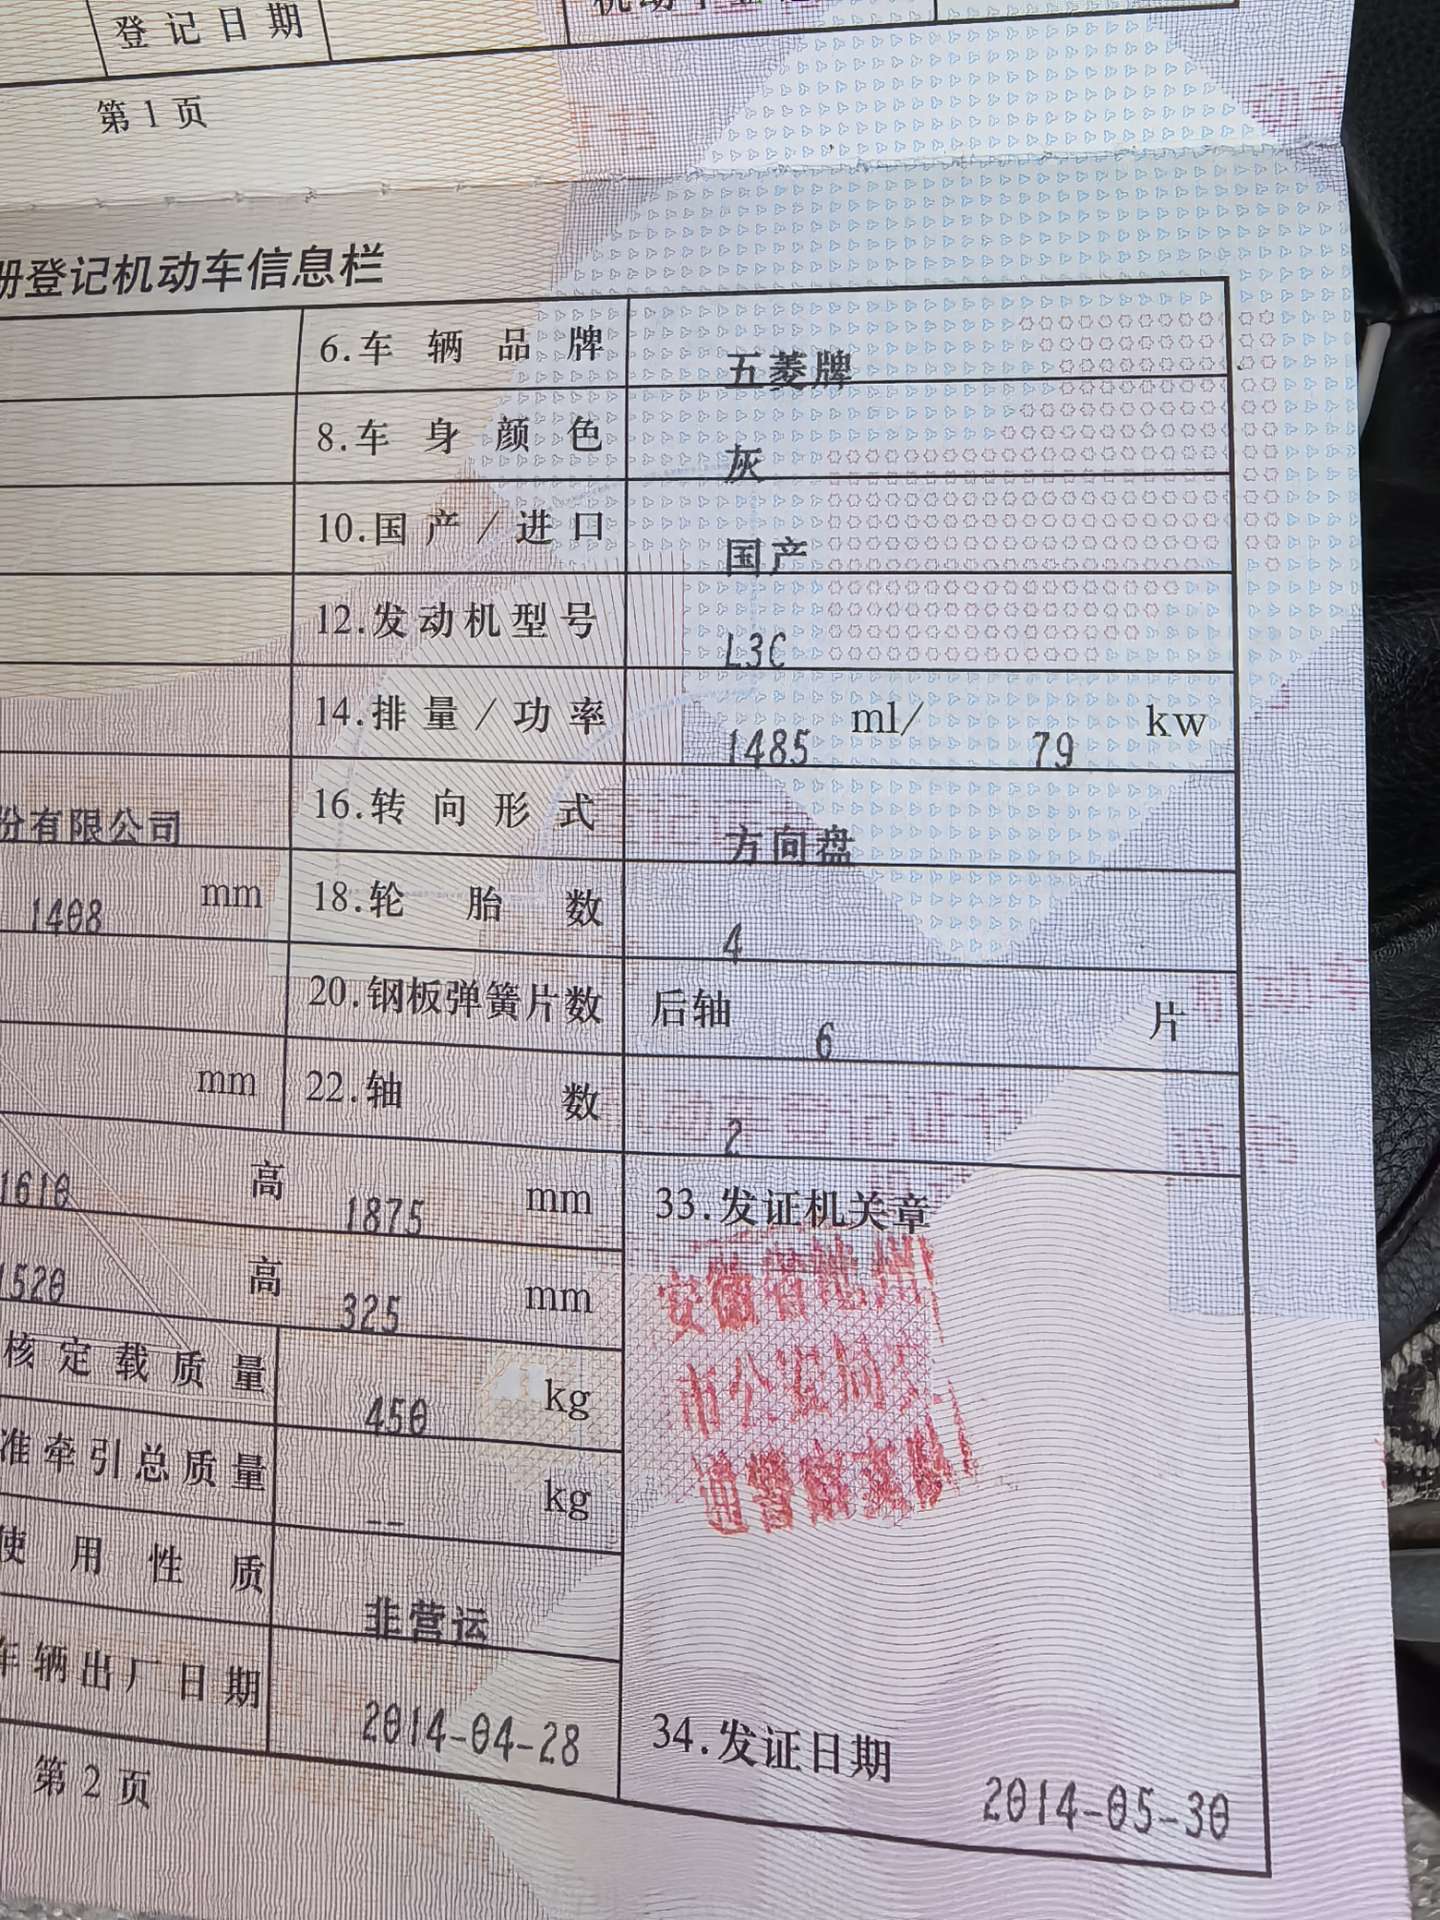 登记日期
第1页
册登记机动车信息栏
6.车辆品牌 五菱牌
8.车身颜色 灰
10.国产/进口 国产
12.发动机型号 L3C
14.排量/功率 1485 ml/ 79 kw
份有限公司 16.转向形式 方向盘
1408 mm 18.轮胎数 4
20.钢板弹簧片数 后轴 6 片
mm 22.轴数 2
1610 高 1875 mm 33.发证机关章
1520 高 325 mm
安徽省池州
核定载质量 450 kg
市公安局交
准牵引总质量 -- kg
通警察支队
使用性质 非营运
车辆出厂日期 2014-04-28 34.发证日期 2014-05-30
第2页